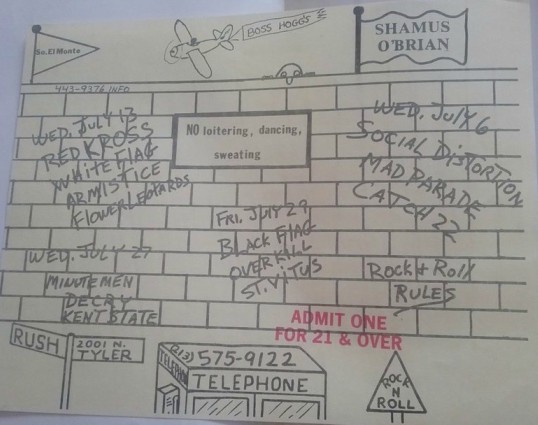 So. El Monte
BOSS HOGG'S
SHAMUS
O'BRIAN
443-9376 INFO
NO loitering, dancing,
sweating
WED. JULY 13
RED KROSS
WHITE FLAG
ARMISTICE
FLOWER LEOPARDS
WED. JULY 6
SOCIAL DISTORTION
MAD PARADE
CATCH 22
FRI. JULY 29
BLACK FLAG
OVERKILL
ST. VITUS
WED. JULY 27
MINUTEMEN
DECRY
KENT STATE
ROCK + ROLL
RULES
ADMIT ONE
FOR 21 & OVER
RUSH
2001 N.
TYLER
(213) 575-9122
TELEPHONE
TELEPHONE
ROCK
N
ROLL